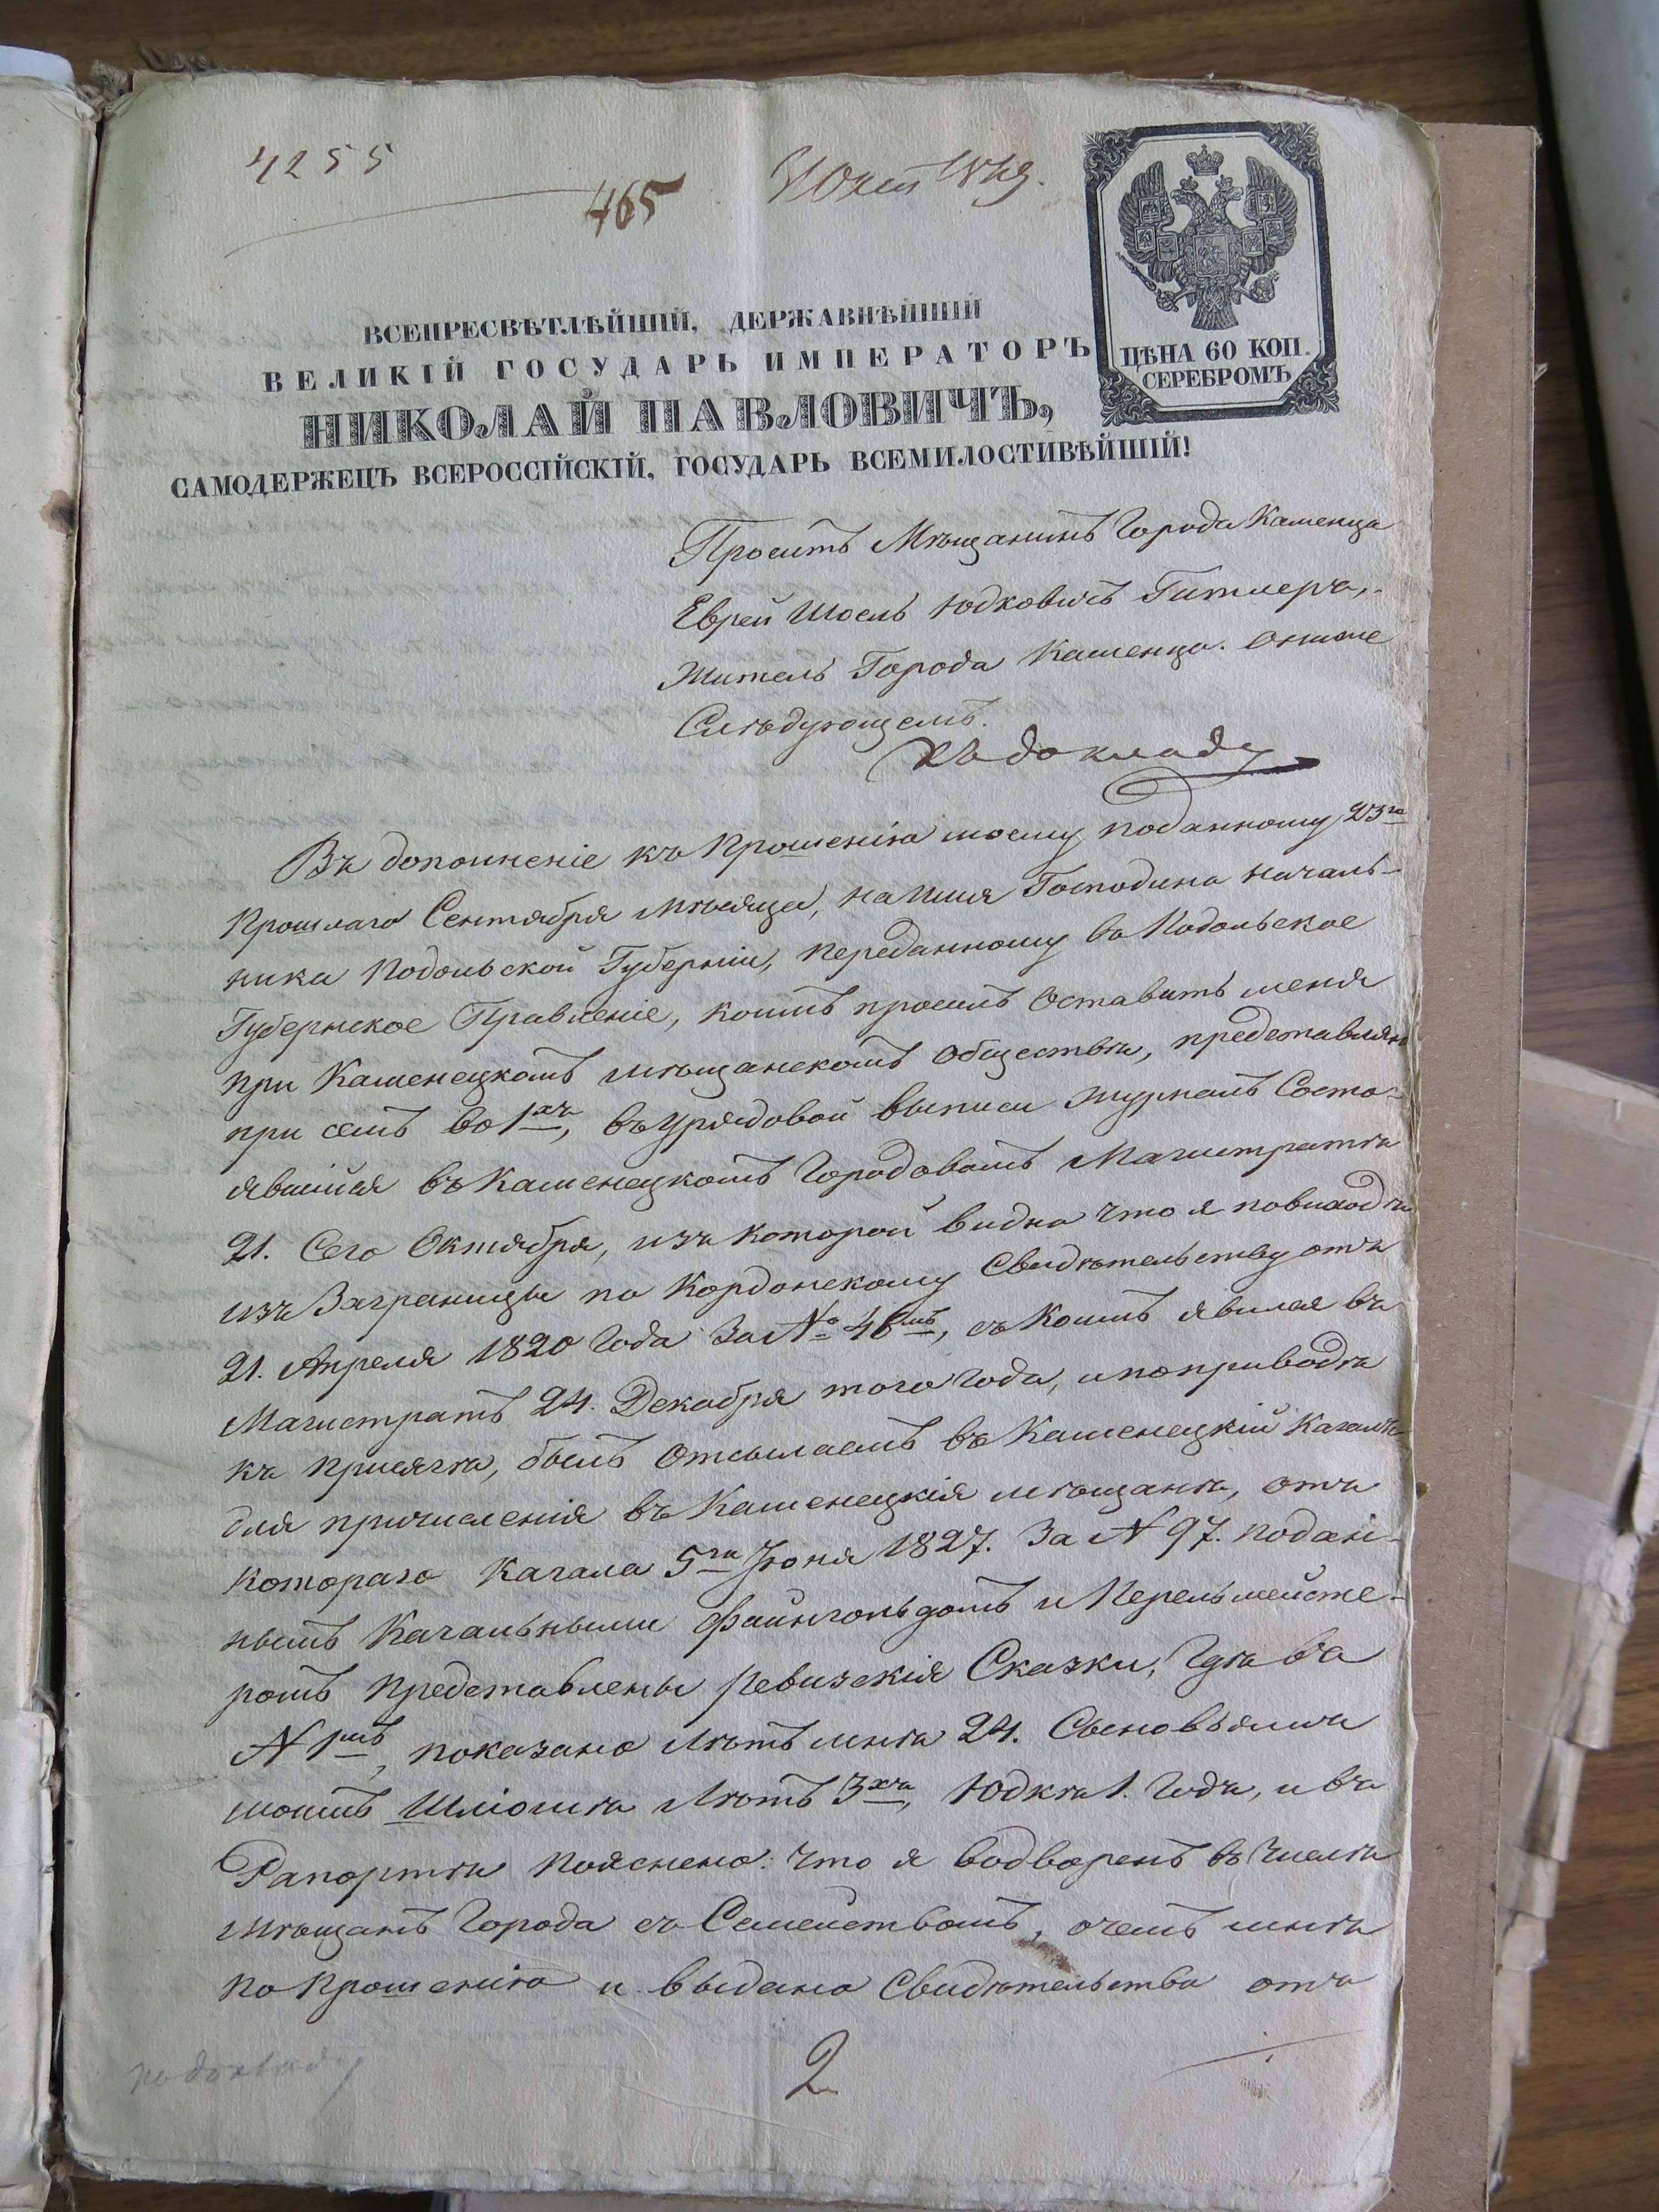 4255
465
Окт 1849.
ЦѢНА 60 КОП.
СЕРЕБРОМЪ
ВСЕПРЕСВѢТЛѢЙШІЙ, ДЕРЖАВНѢЙШІЙ
ВЕЛИКІЙ ГОСУДАРЬ ИМПЕРАТОРЪ
НИКОЛАЙ ПАВЛОВИЧЪ,
САМОДЕРЖЕЦЪ ВСЕРОССІЙСКІЙ, ГОСУДАРЬ ВСЕМИЛОСТИВѢЙШІЙ!
Проситъ Мѣщанинъ Города Каменца
Еврей Шоель Юдковичъ Гитлеръ,
Житель Города Каменца. О ниже
Слѣдующемъ.
Къ докладу
Въ дополненіе къ прошенію моему поданному 23го
прошлаго Сентября мѣсяца, на имя Господина Началь-
ника Подольской Губерніи, переданному въ Подольское
Губернское Правленіе, коимъ просилъ оставить меня
при Каменецкомъ мѣщанскомъ обществѣ, представляю
при семъ во 1хъ, въ урядовой выписи журналъ Состо-
явшійся въ Каменецкомъ Городовомъ Магистратѣ
21. Сего Октября, изъ которой видно что я по выходѣ
изъ Заграницы по Кордонскому Свидѣтельству отъ
21. Апреля 1820 Года за № 46мъ, съ коимъ явился въ
Магистратъ 24. Декабря того Года, и по приводѣ
къ присягѣ, былъ отсылаемъ въ Каменецкій Кагалъ
для причисленія въ Каменецкія мѣщанѣ, отъ
котораго Кагала 5го Іюня 1827. За N 97. подан-
нымъ Кагальными Файнгольдомъ и Перельмейсте-
ромъ представлены Ревизскія Сказки, Гдѣ въ
N 1мъ, показано лѣтъ мнѣ 24. Сыновьямъ
моимъ Шліомѣ лѣтъ 3хъ, Юдкѣ 1. Годъ, и въ
Рапортѣ пояснено: что я водворенъ въ числѣ
мѣщанъ Города съ Семействомъ, о чемъ мнѣ
по прошенію и выдано Свидѣтельство отъ
2
по докладу